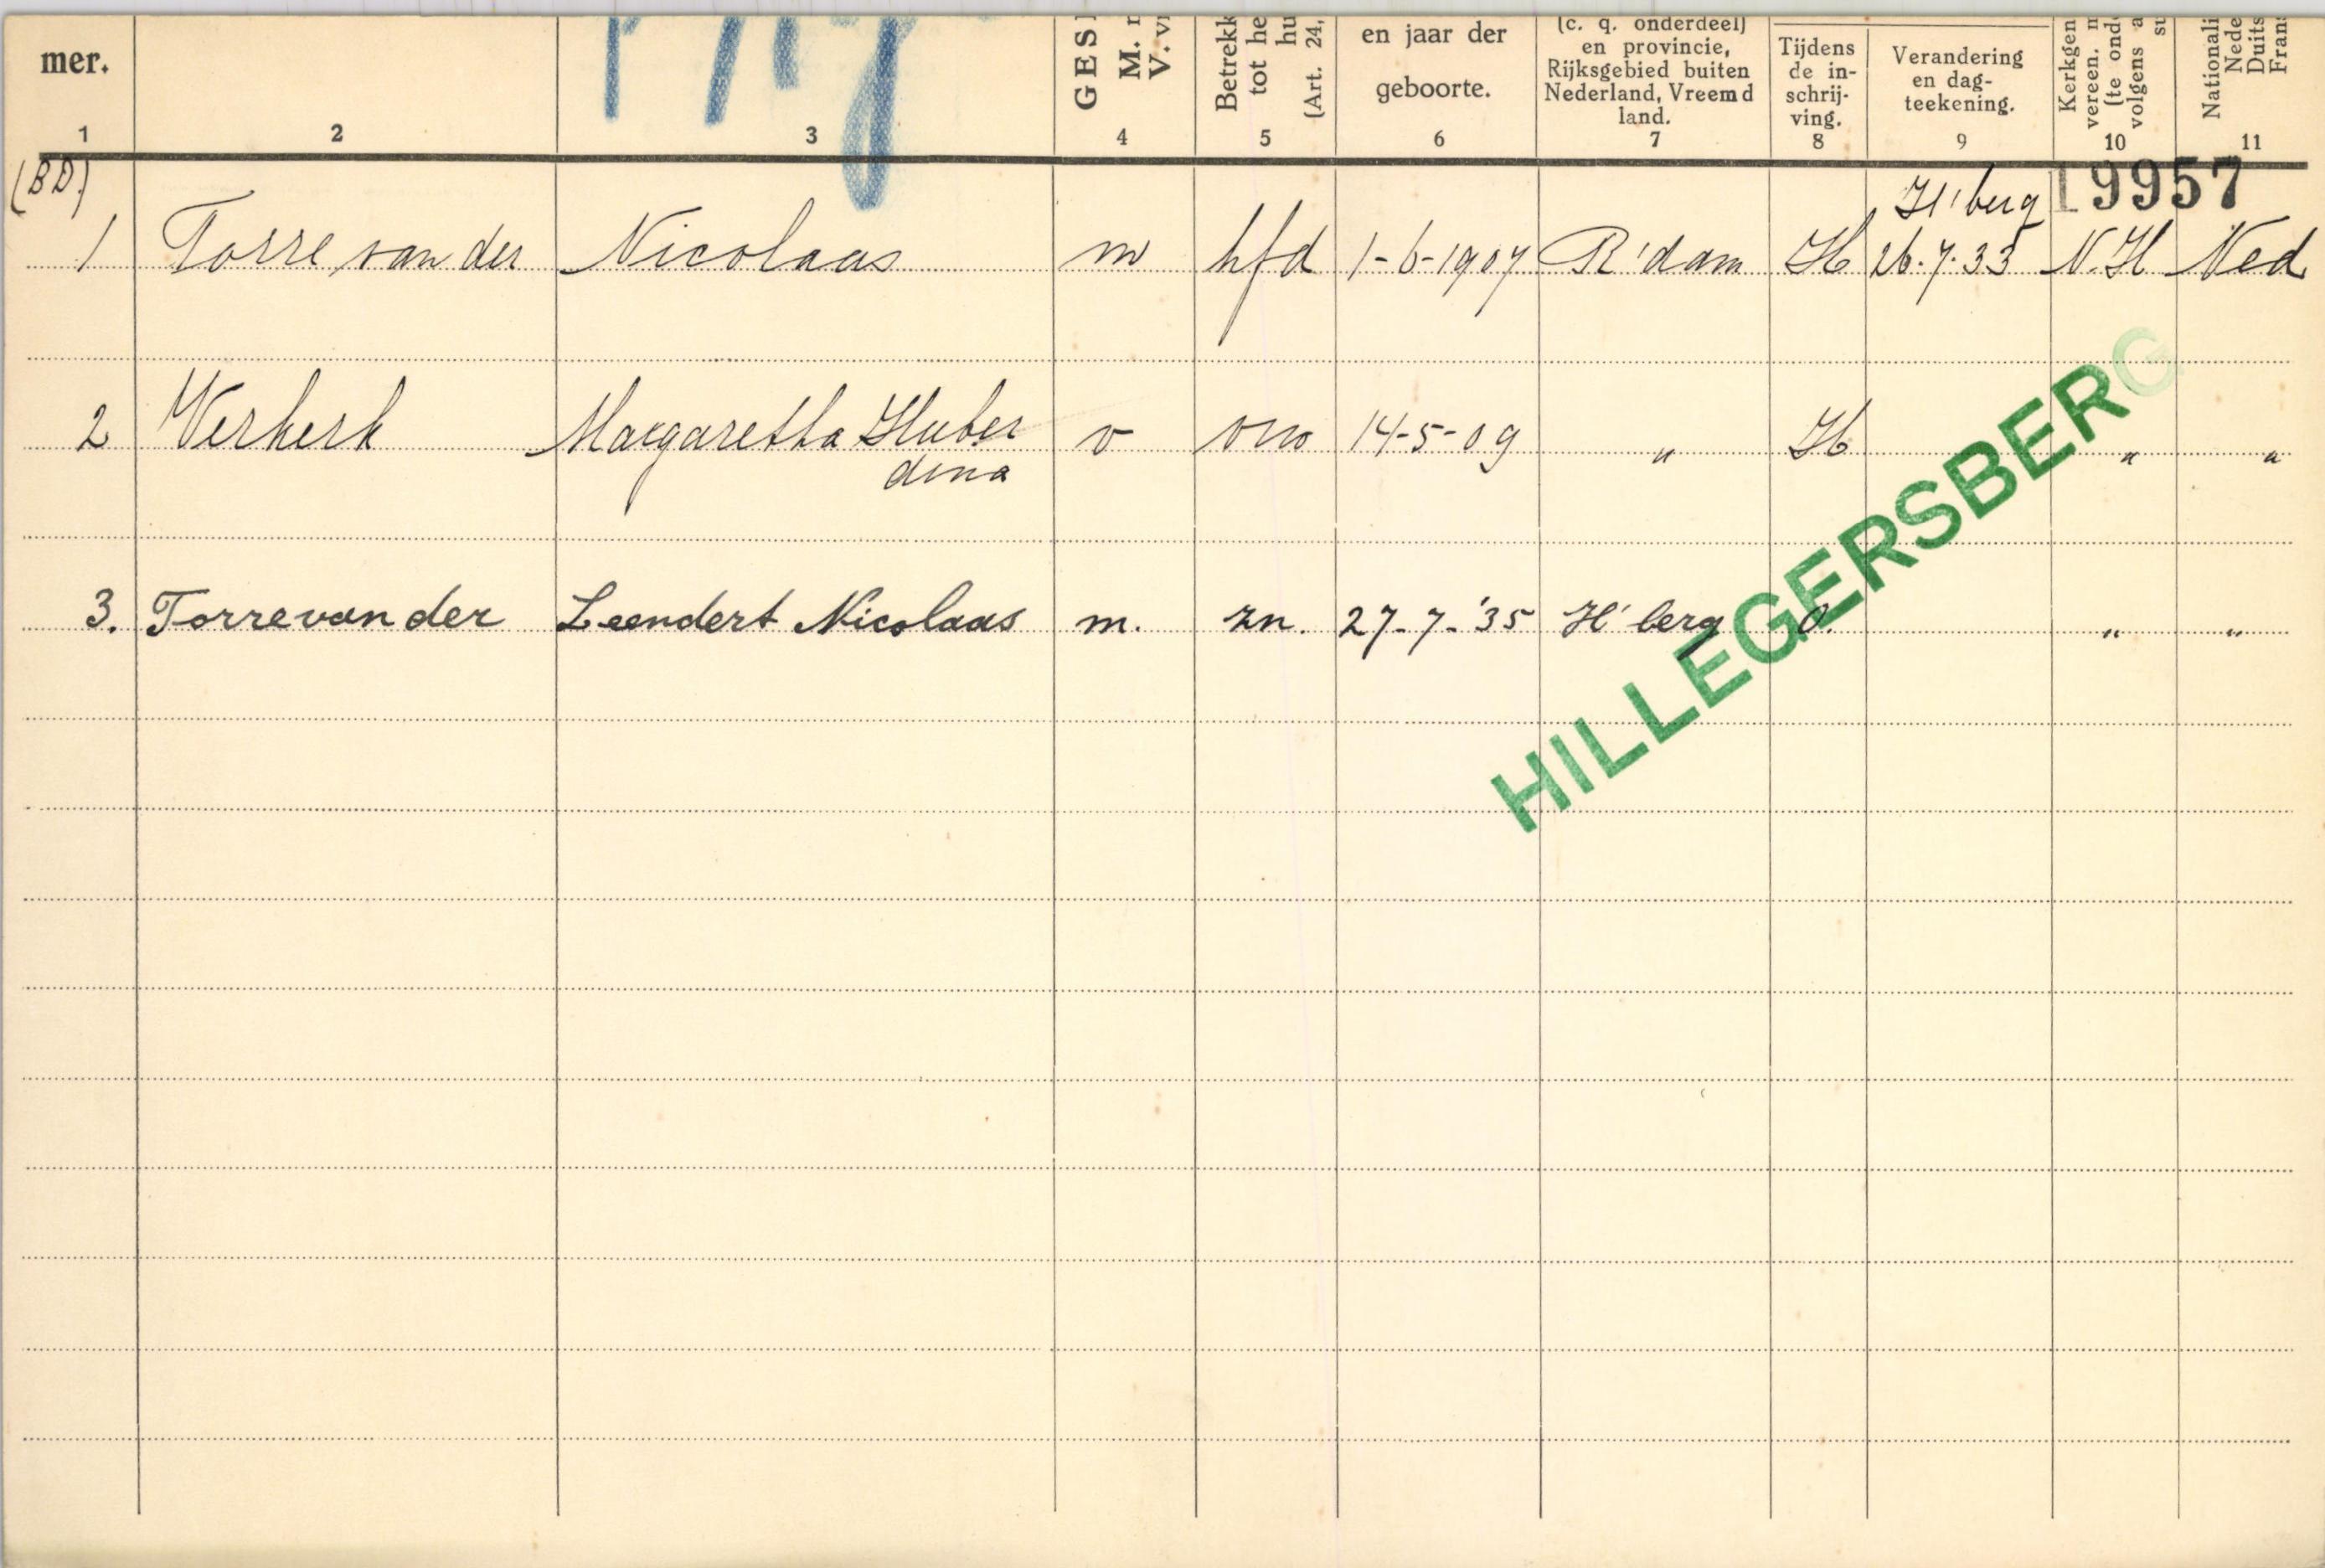 mer.
GES
M.
V.
Betrekk
tot he
hu
(Art. 24,
en jaar der
geboorte.
(c. q. onderdeel)
en provincie,
Rijksgebied buiten
Nederland, Vreemd
land.
Tijdens
de in-
schrij-
ving.
Verandering
en dag-
teekening.
Kerkgen
vereen. m
(te ond
volgens a
su
Nationali
Nede
Duits
Frans
1 2 3 4 5 6 7 8 9 10 11
(BD) H'berg 19957
1 Torre van der Nicolaas m hfd 1-6-1907 R'dam H 26.7.33 N.H Ned
2 Verkerk Margaretha Huber v vrw 14-5-09 " H " "
dina
3. Torre van der Leendert Nicolaas m. zn. 27-7-'35 H'berg O. " "
HILLEGERSBERG